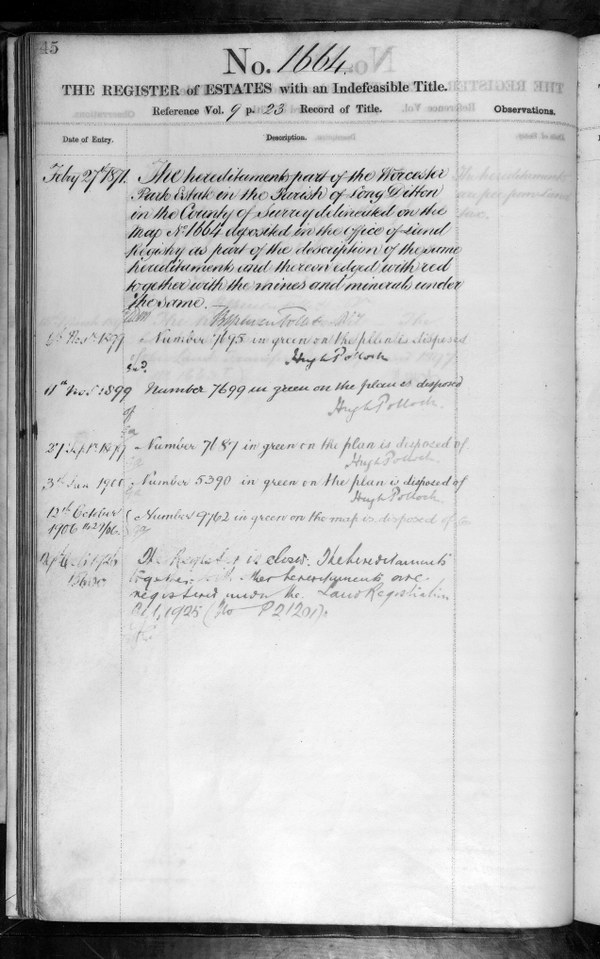 45
No. 1664.
THE REGISTER of ESTATES with an Indefeasible Title.
Reference Vol. 9 p. 23 Record of Title.
Observations.
Date of Entry.
Description.
Feby 27th 1871.
The hereditaments part of the Worcester
Park Estate in the Parish of Long Ditton
in the County of Surrey delineated on the
Map No 1664 deposited in the Office of Land
Registry as part of the description of the same
hereditaments and thereon edged with red
together with the mines and minerals under
the same.
Number 7695 in green on the plan is disposed
Hugh Pollock
11th 1899
Number 7699 in green on the plan is disposed
of
Hugh Pollock.
27 Sept
Number 7687 in green on the plan is disposed of
Hugh Pollock
3rd Jan 1900
Number 5390 in green on the plan is disposed of
Hugh Pollock
12th October
1906
Number 9762 in green on the map is disposed of
The Register is closed. The hereditaments
together with other hereditaments are
registered under the Land Registration
Act, 1925 (No P21201).